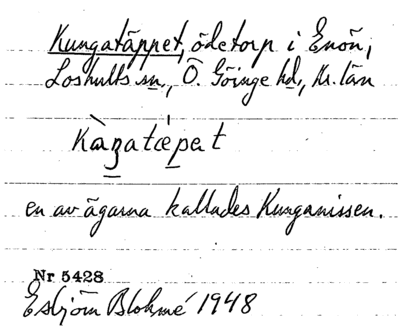 Kungatäppet, ödetorp i Enön,
Loshults sn., Ö. Göinge hd., Kr. län
en av ägarna kallades Kunganissen.
Nr 5428
Esbjörn Blohmé 1948